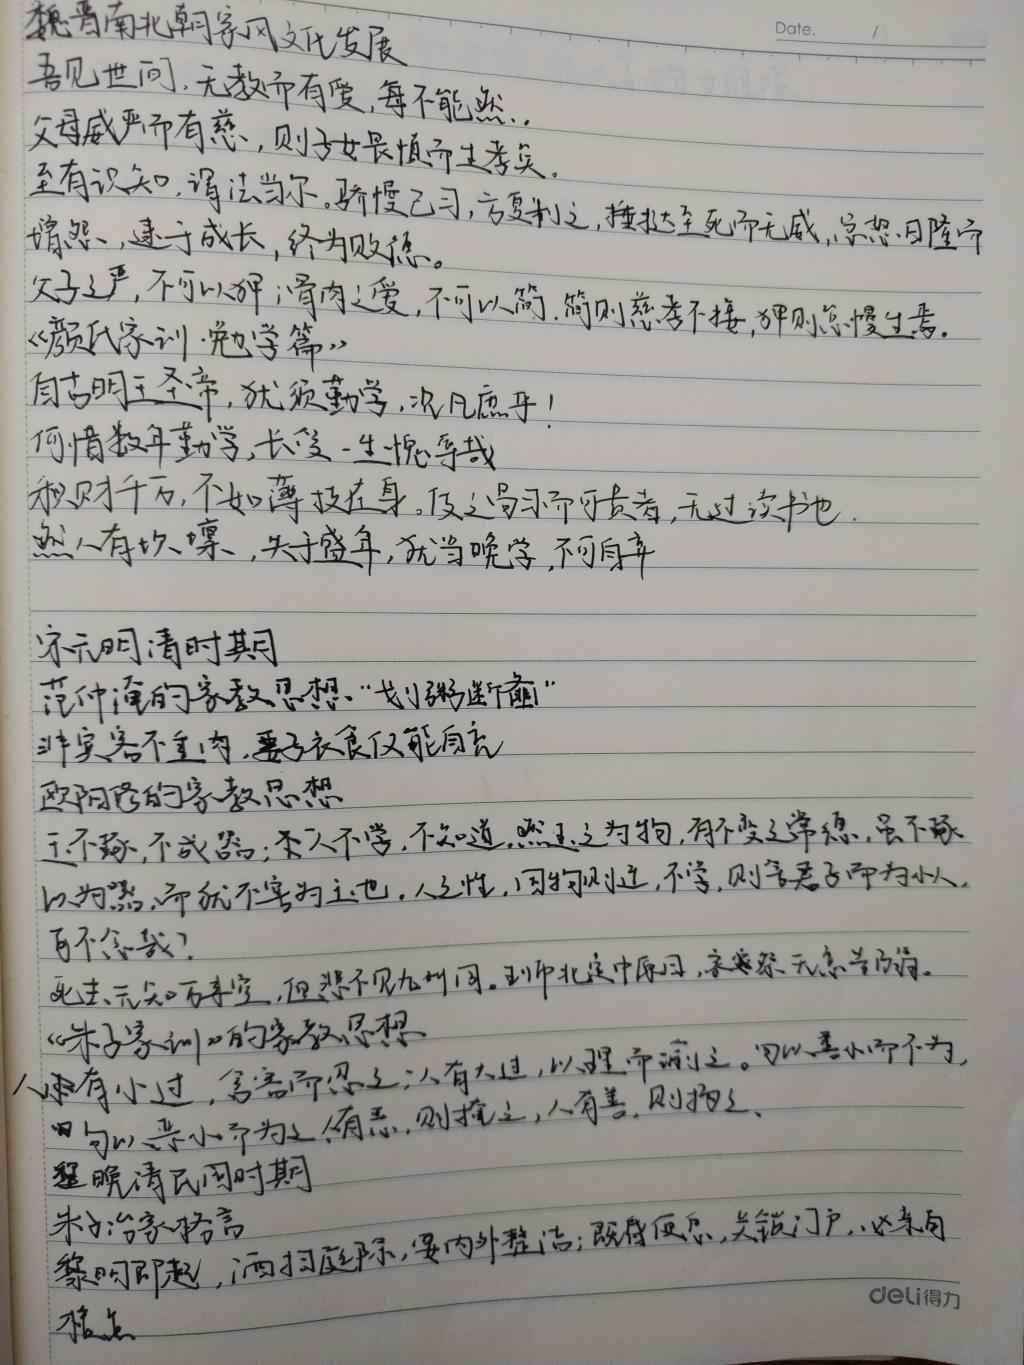 Date. /
魏晋南北朝家风文化发展
吾见世间,无教而有爱,每不能然.
父母威严而有慈,则子女畏慎而生孝矣.
至有识知,谓法当尔。骄慢已习,方复制之,捶挞至死而无威,忿怒日隆而
增怨,逮于成长,终为败德。
父子之严,不可以狎;骨肉之爱,不可以简.简则慈孝不接,狎则怠慢生焉.
《颜氏家训·勉学篇》
自古明王圣帝,犹须勤学,况凡庶乎!
何惜数年勤学,长受一生愧辱哉
积财千万,不如薄技在身。伎之易习而可贵者,无过读书也.
然人有坎壈,失于盛年,犹当晚学,不可自弃
宋元明清时期
范仲淹的家教思想."划粥断齑"
非宾客不重肉,妻子衣食仅能自充
欧阳修的家教思想
玉不琢,不成器;人不学,不知道.然玉之为物,有不变之常德,虽不琢
以为器,而犹不害为玉也.人之性,因物则迁,不学,则舍君子而为小人,
可不念哉?
死去元知万事空,但悲不见九州同。王师北定中原日,家祭无忘告乃翁。
《朱子家训》的家教思想
人有小过,含容而忍之;人有大过,以理而谕之。勿以善小而不为,
勿以恶小而为之人有恶,则掩之,人有善,则扬之、
晚清民国时期
朱子治家格言
黎明即起,洒扫庭除,要内外整洁;既昏便息,关锁门户,必亲自
检点
deli得力